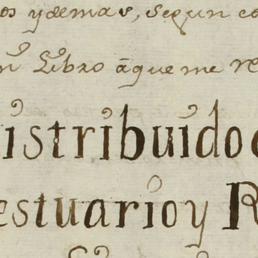 os ydemas, segun co
n Libro áque me re
istribuido
estuarioy R